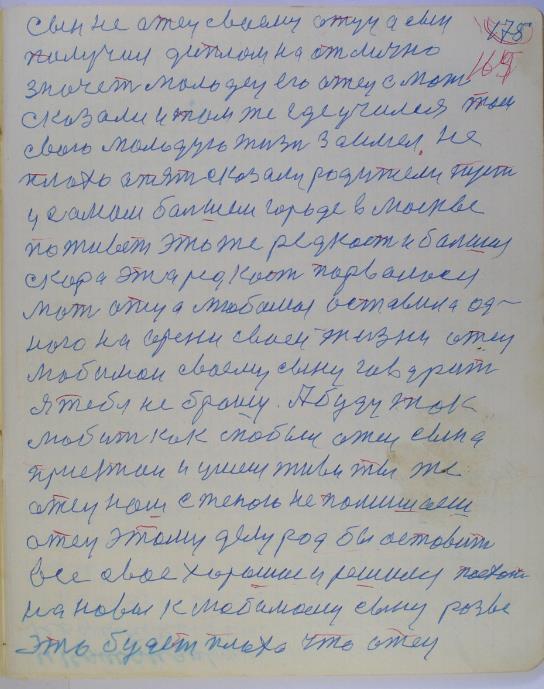 сын не отец своему отцу а сын 175
получил диплом на отлично 165
значет молодец его отец с мот
сказали и там же где учился там
свою молодую жизн заимел. Не
плохо апят сказали родители пусти
и самом балшем городе в Москве
поживет это же редкост и балшая
скора эта редкост порвалася
мот отца любимая оставила од-
ного на арени своей жизни отец
любимой своему сыну говорит
я тебя не брошу. А буду так
любит как любил отец сына
приехал и у меня живи ты же
отец нам с тепого не помишаеш
отец этому делу рад бы оставит
все свое хорошие и решился поехат
на новые к любимому сыну розве
это будет плохо что отец